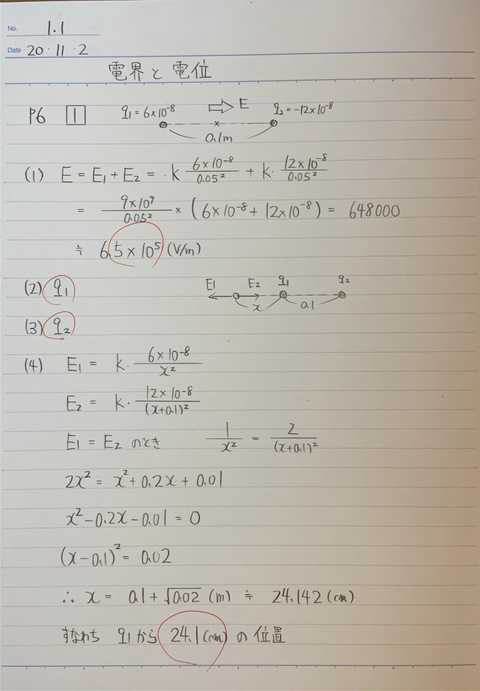 No. 1.1
Date 20・11・2
電界と電位
P6 1 q₁=6×10⁻⁸ ⇨ E q₂=-12×10⁻⁸
0.1m
(1) E = E₁ + E₂ = k・6×10⁻⁸/0.05² + k・12×10⁻⁸/0.05²
= 9×10⁹/0.05² × (6×10⁻⁸+12×10⁻⁸) = 648000
≒ 6.5×10⁵ (V/m)
(2) q₁
E₁ E₂ q₁ q₂
x 0.1
(3) q₂
(4) E₁ = k・6×10⁻⁸/x²
E₂ = k・12×10⁻⁸/(x+0.1)²
E₁ = E₂ のとき 1/x² = 2/(x+0.1)²
2x² = x²+0.2x+0.01
x²-0.2x-0.01=0
(x-0.1)²=0.02
∴ x = 0.1+√0.02 (m) ≒ 24.142(cm)
すなわち q₁から 24.1(cm) の位置